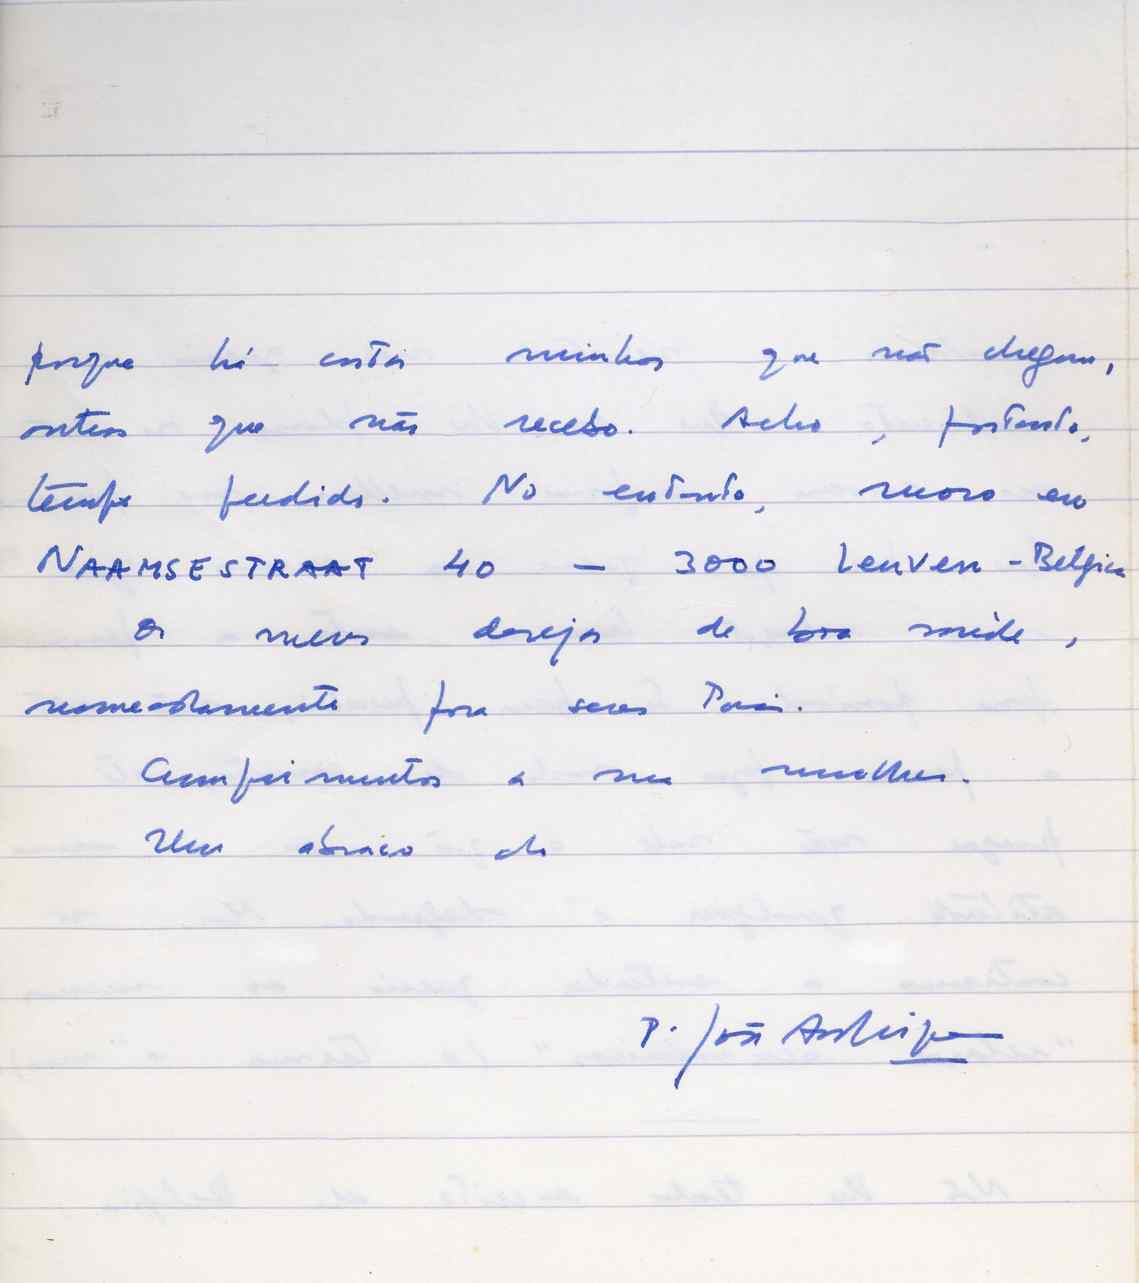 porque há cartas minhas que não chegam,
outras que não recebo. Acho, portanto,
tempo perdido. No entanto, moro em
NAAMSESTRAAT 40 — 3000 Leuven - Belgica
Os meus desejos de boa saúde,
nomeadamente para seus Pais.
Cumprimentos a sua mulher.
Um abraço de
P. João